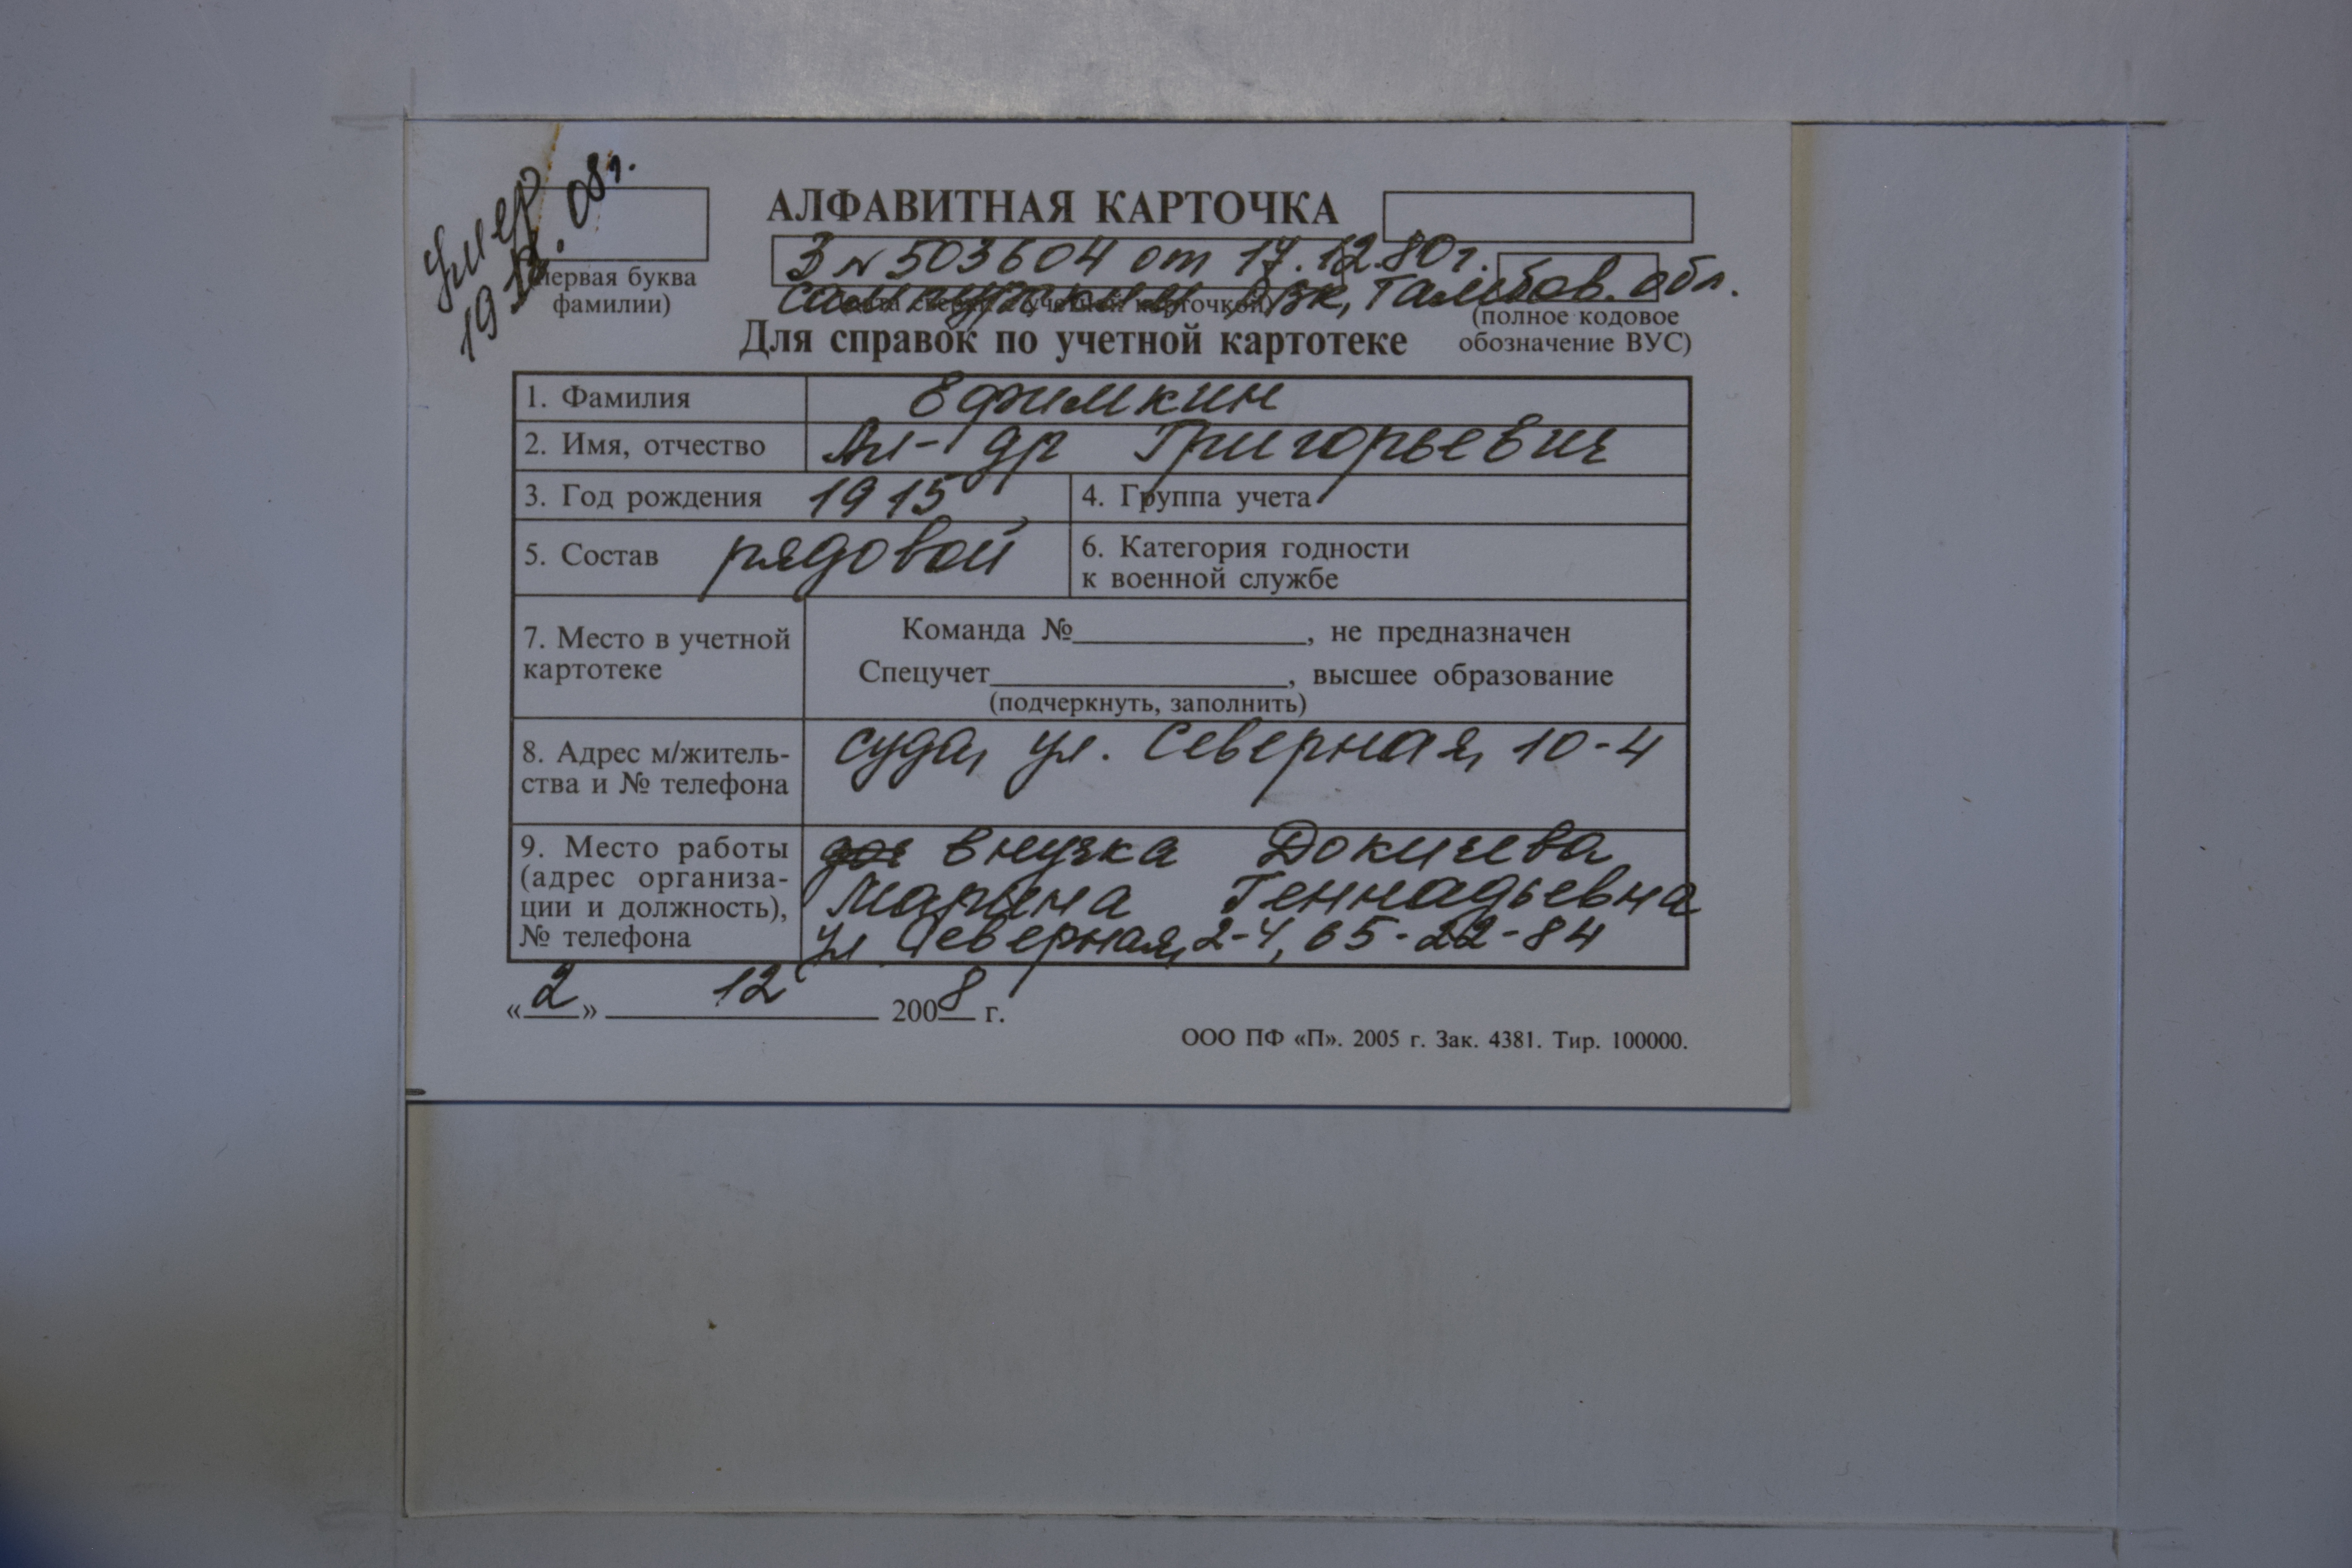 Умер
19.12.08г.
АЛФАВИТНАЯ КАРТОЧКА
З № 503604 от 17.12.80г.
Сампурским РВК, Тамбов. обл.
(первая буква фамилии)
учетной карточкой)
(полное кодовое обозначение ВУС)
Для справок по учетной картотеке
1. Фамилия Ефимкин
2. Имя, отчество Ал-др Григорьевич
3. Год рождения 1915 4. Группа учета
5. Состав рядовой 6. Категория годности
к военной службе
7. Место в учетной
картотеке
Команда №__________, не предназначен
Спецучет__________, высшее образование
(подчеркнуть, заполнить)
8. Адрес м/житель-
ства и № телефона
Суда, ул. Северная, 10-4
9. Место работы
(адрес организа-
ции и должность),
№ телефона
внучка Докичева
Марина Геннадьевна
ул Северная, 2-4, 65-22-84
«2» 12 2008 г.
ООО ПФ «П». 2005 г. Зак. 4381. Тир. 100000.